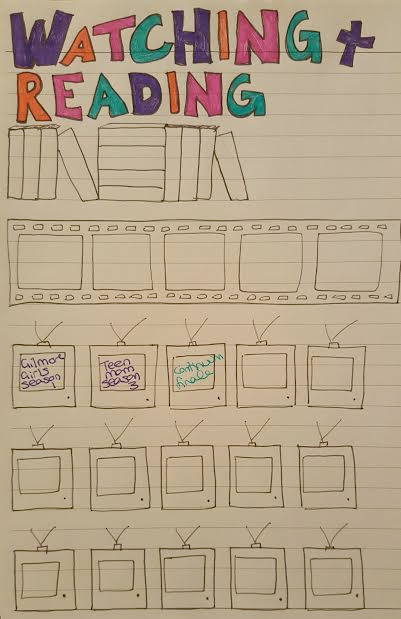 WATCHING +
READING
Gilmore
Girls
season
1
Teen
mom
season
3
Continuum
finale